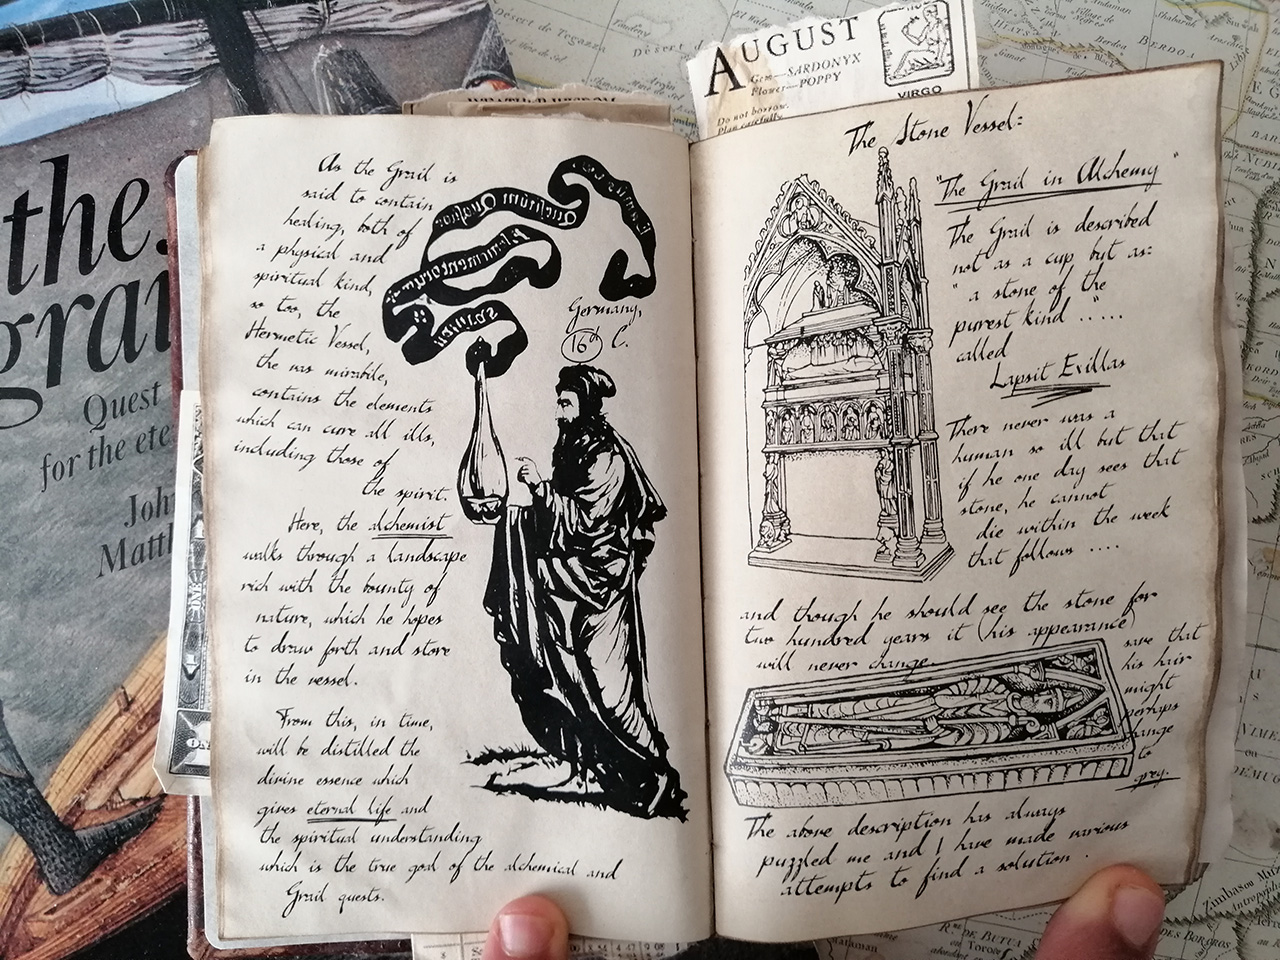 the
grai
Quest
for the ete
Joh
Matt
AUGUST
Gem—SARDONYX
Flower—POPPY
Do not borrow.
Plan carefully.
VIRGO
As the Grail is
said to contain
healing, both of
a physical and
spiritual kind,
so too, the
Hermetic Vessel,
the vas mirabile,
contains the elements
which can cure all ills,
including those of
the spirit.
Germany,
16th C.
Here, the alchemist
walks through a landscape
rich with the bounty of
nature, which he hopes
to draw forth and store
in the vessel.
From this, in time,
will be distilled the
divine essence which
gives eternal life and
the spiritual understanding
which is the true goal of the alchemical and
Grail quests.
The Stone Vessel:
"The Grail in Alchemy"
The Grail is described
not as a cup but as:
"a stone of the
purest kind ....."
called
Lapsit Exillas
There never was a
human so ill but that
if he one day sees that
stone, he cannot
die within the week
that follows ....
and though he should see the stone for
two hundred years it (his appearance)
will never change.
save that
his hair
might
perhaps
ange
to
grey.
The above description has always
puzzled me and I have made various
attempts to find a solution.
BERDOA
Zimbaoa
Rme DE BUTUA
DES BOROROS